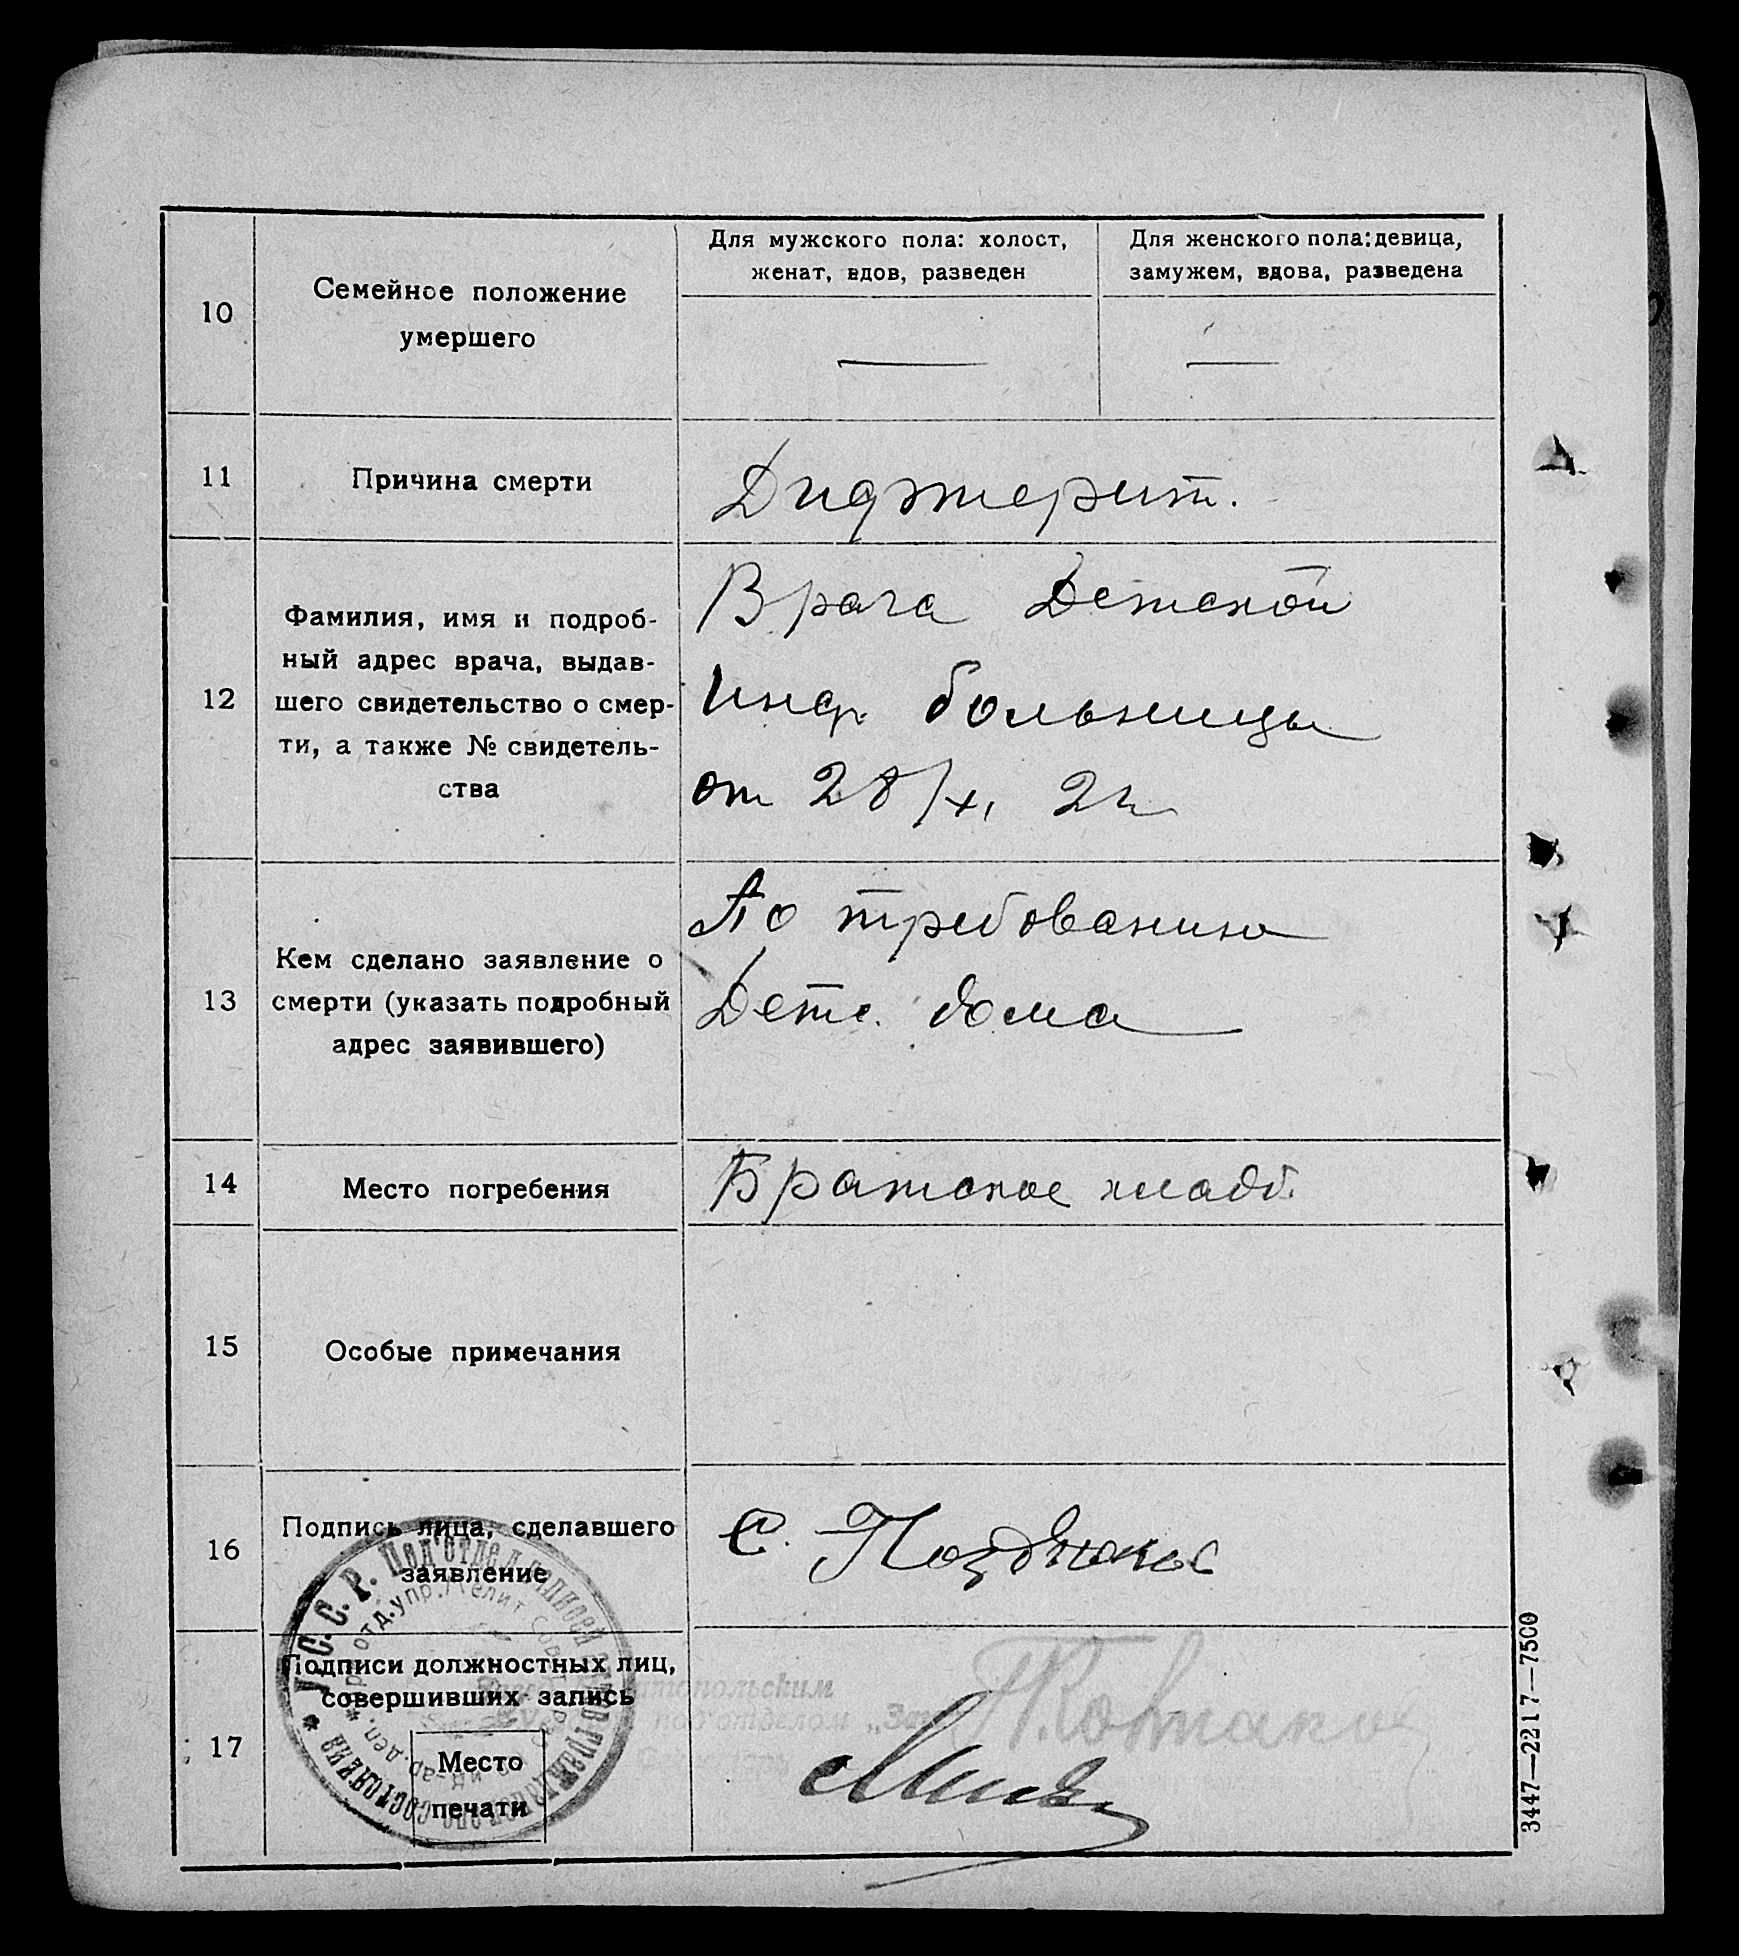 Для мужского пола: холост,
женат, вдов, разведен
Для женского пола: девица,
замужем, вдова, разведена
10
Семейное положение
умершего
— —
11
Причина смерти
Дифтерит.
12
Фамилия, имя и подроб-
ный адрес врача, выдав-
шего свидетельство о смер-
ти, а также № свидетель-
ства
Врача Детской
инф. больницы
от 28/XI 2
13
Кем сделано заявление о
смерти (указать подробный
адрес заявившего)
По требованию
Детс. дома
14
Место погребения
Братское кладб.
15
Особые примечания
16
Подпись лица, сделавшего
заявление
С.
17
Подписи должностных лиц,
совершивших запись
Место
печати
У.С.С.Р. Под'отдел записей гражданского состояния
отд.упр. Мелит
под'отделом „За
3447—2217—7500